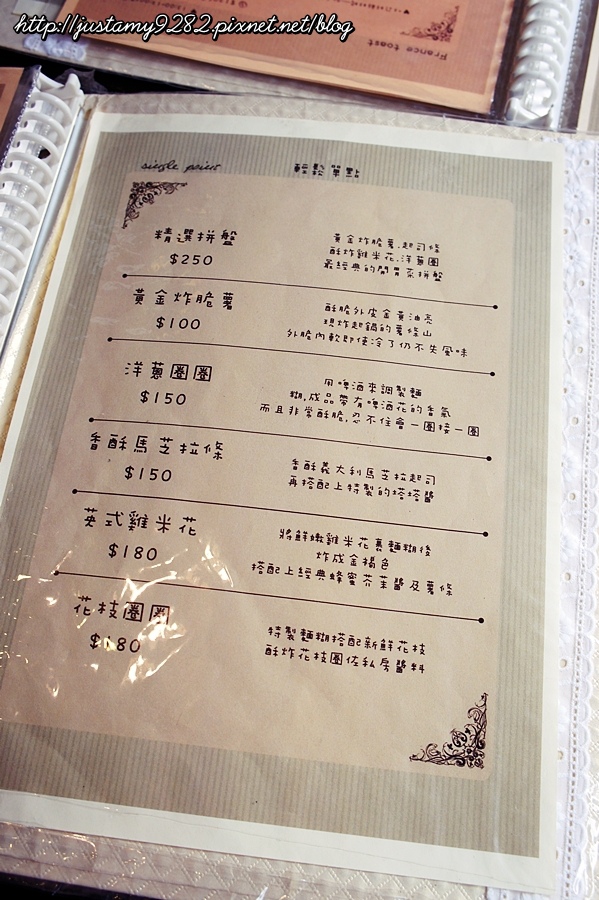 http://justamy9282.pixnet.net/blog
France toast
single point
輕鬆單點
精選拼盤
$250
黃金炸脆薯.起司條
酥炸雞米花.洋蔥圈
最經典的開胃菜拼盤
黃金炸脆薯
$100
酥脆外皮金黃油亮
現炸起鍋的薯條山
外脆內軟即使冷了仍不失風味
洋蔥圈圈
$150
用啤酒來調製麵
糊,成品帶有啤酒花的香氣
而且非常酥脆,忍不住會一圈接一圈
香酥馬芝拉條
$150
香酥義大利馬芝拉起司
再搭配上特製的塔塔醬
英式雞米花
$180
將鮮嫩雞米花裹麵糊後
炸成金褐色
搭配上經典蜂蜜芥茉醬及薯條
花枝圈圈
$180
特製麵糊搭配新鮮花枝
酥炸花枝圈佐私房醬料